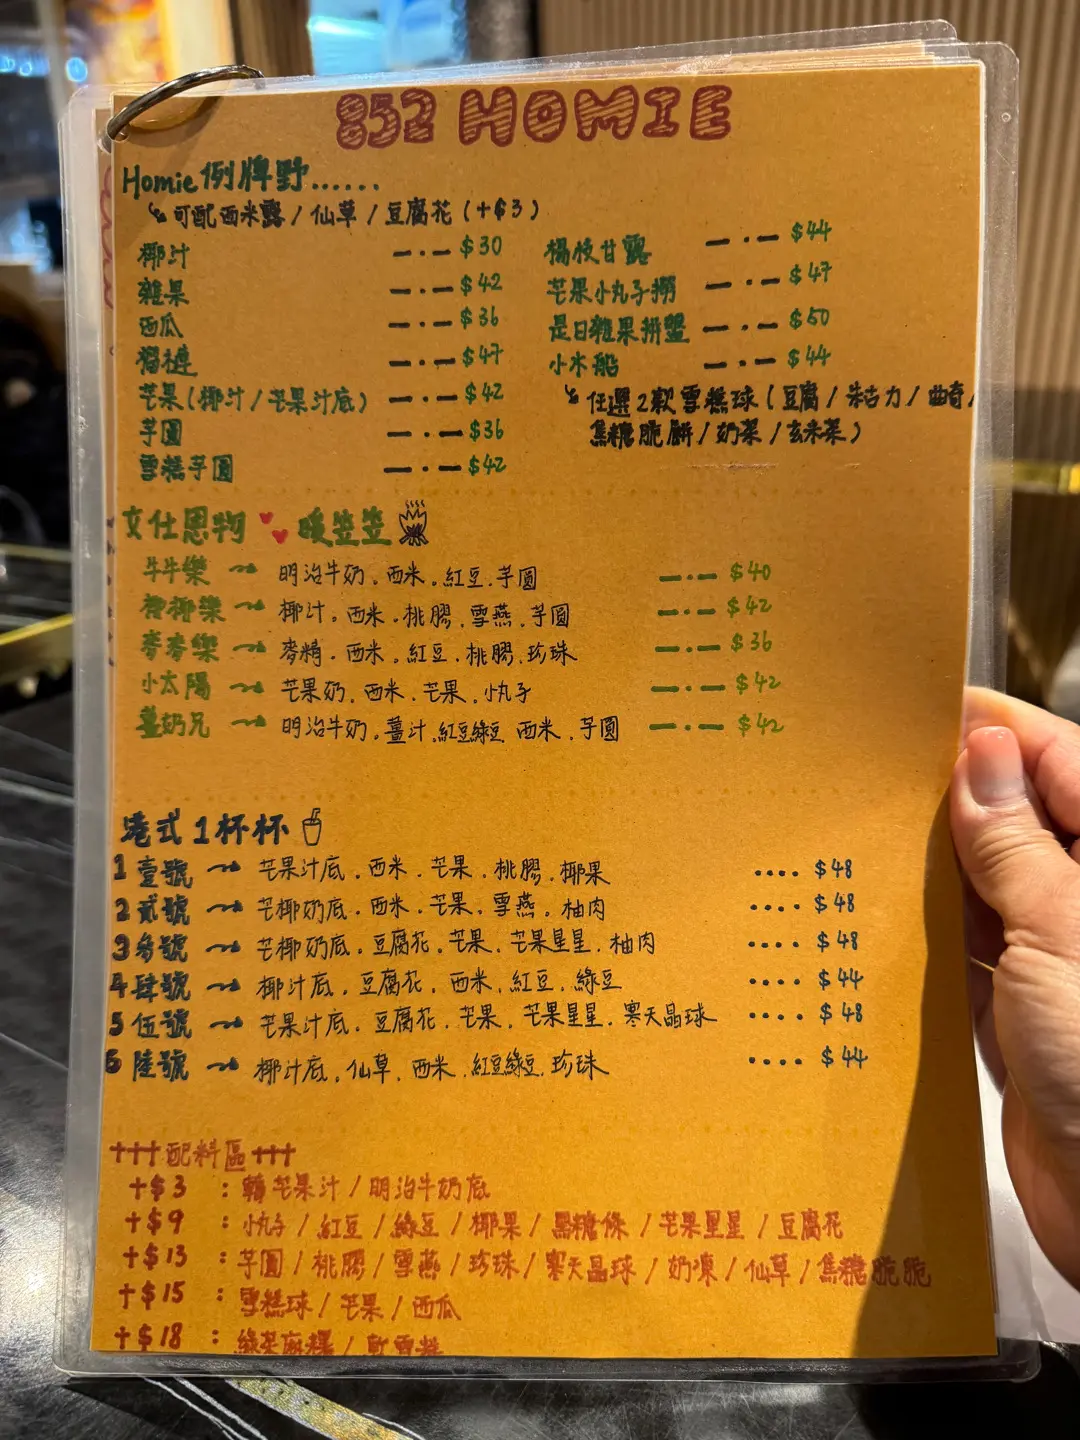 852 HOMIE
Homie 例牌野......
可配西米露/仙草/豆腐花(+$3)
椰汁 —·— $30
雜果 —·— $42
西瓜 —·— $36
榴槤 —·— $47
芒果(椰汁/芒果汁底) —·— $42
芋圓 —·— $36
雪糕芋圓 —·— $42
楊枝甘露 —·— $44
芒果小丸子撈 —·— $47
是日雜果拼盤 —·— $50
小木船 —·— $44
任選2款雪糕球(豆腐/朱古力/曲奇/
焦糖脆餅/奶茶/玄米茶)
女仕恩物 暖笠笠
牛牛樂 明治牛奶.西米.紅豆.芋圓 —·— $40
椰椰樂 椰汁.西米.桃膠.雪燕.芋圓 —·— $42
麥麥樂 麥精.西米.紅豆.桃膠.珍珠 —·— $36
小太陽 芒果奶.西米.芒果.小丸子 —·— $42
薑奶兄 明治牛奶.薑汁.紅豆綠豆.西米.芋圓 —·— $42
港式1杯杯
1 壹號 芒果汁底.西米.芒果.桃膠.椰果 .... $48
2 貳號 芒椰奶底.西米.芒果.雪燕.柚肉 .... $48
3 參號 芒椰奶底.豆腐花.芒果.芒果星星.柚肉 .... $48
4 肆號 椰汁底.豆腐花.西米.紅豆.綠豆 .... $44
5 伍號 芒果汁底.豆腐花.芒果.芒果星星.寒天晶球 .... $48
6 陸號 椰汁底.仙草.西米.紅豆綠豆.珍珠 .... $44
+++配料區+++
+$3 : 轉芒果汁/明治牛奶底
+$9 : 小丸子/紅豆/綠豆/椰果/黑糖條/芒果星星/豆腐花
+$13 : 芋圓/桃膠/雪燕/珍珠/寒天晶球/奶凍/仙草/焦糖脆脆
+$15 : 雪糕球/芒果/西瓜
+$18 : 綠茶麻糬/軟雪糕